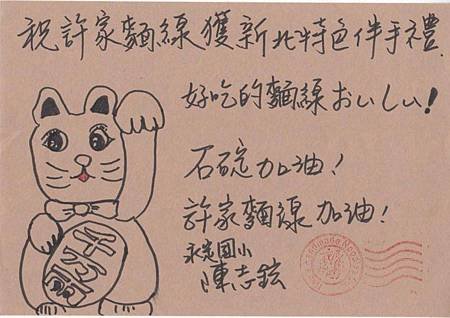 祝許家麵線獲新北特色伴手禮.
好吃的麵線おいしい!
石碇加油!
許家麵線加油!
永定國小
陳志鋐
千万両
Handmade Noodles